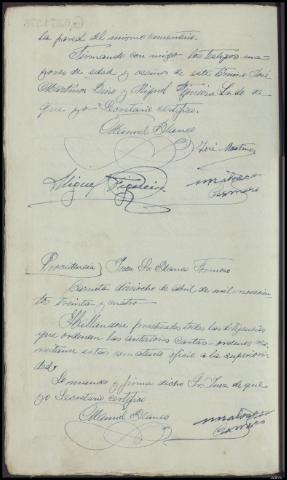 la pared del mismo cementerio.
Firmando con migo los testigos ma-
yores de edad y vecinos de este término José
Martínez y Miguel Figueira de
que yo Secretario certifico.
Manuel Blanco
José Martínez
Miguel Figueira
Providencia) Juez Sr Blanco
dieciocho de abril de mil novecien-
tos treinta y cuatro.
Hallándose practicadas todas las diligencias
que ordenan las anteriores cartas-ordenes
estas con atento oficio a la superiori-
dad.
Lo mandó y firma dicho Sr Juez de que
yo Secretario certifico
Manuel Blanco